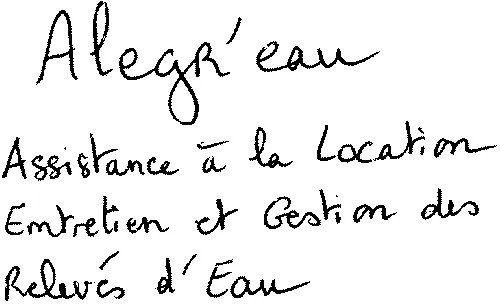 Alegr'eau
Assistance à la Location
Entretien et Gestion des
Relevés d'Eau